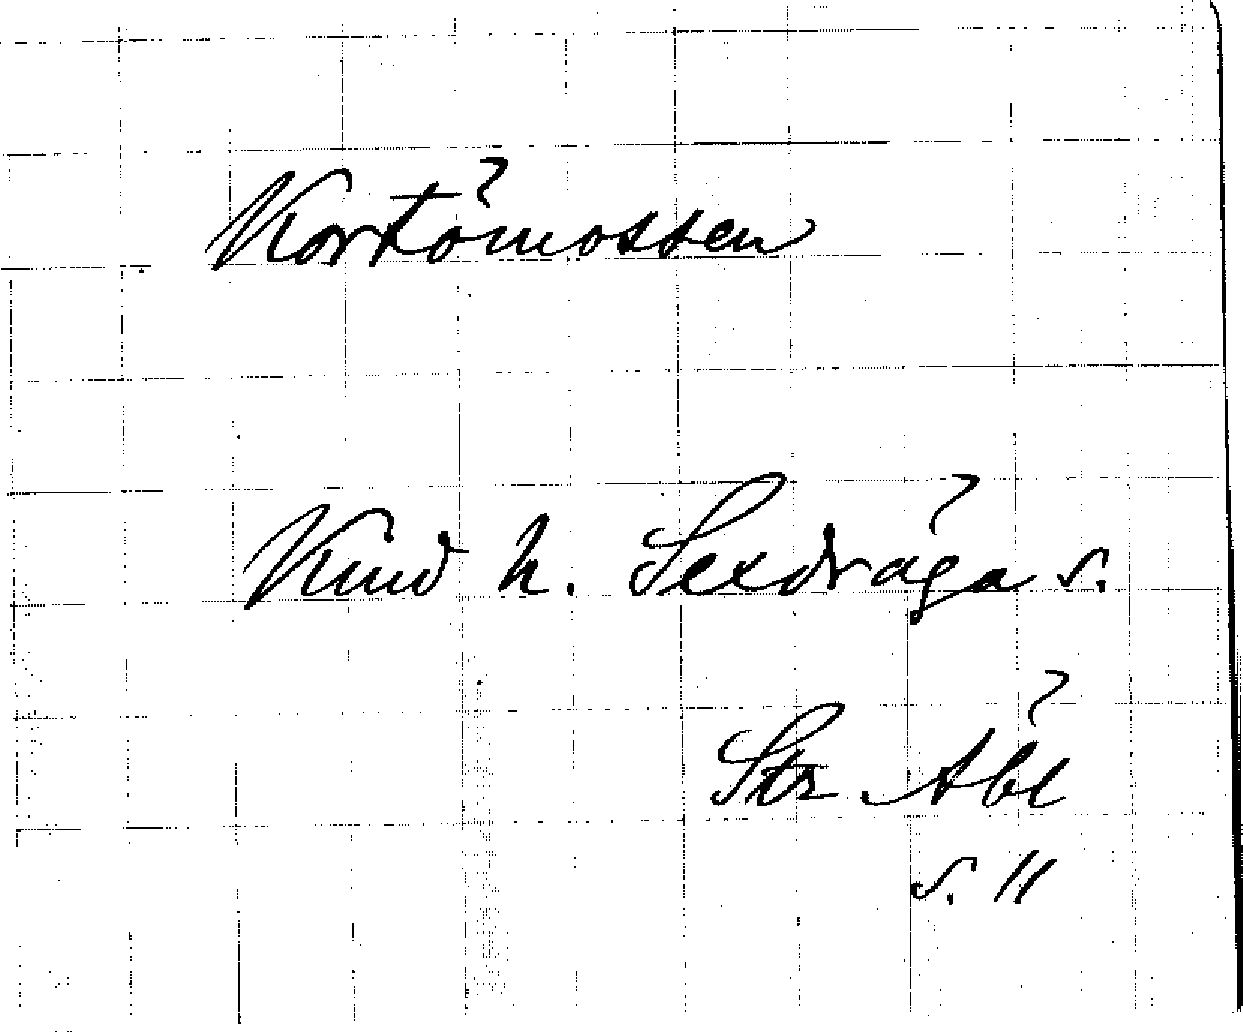 Kortömossen
Knud h. Sexdråga s.
Str. Åbl
s. 11